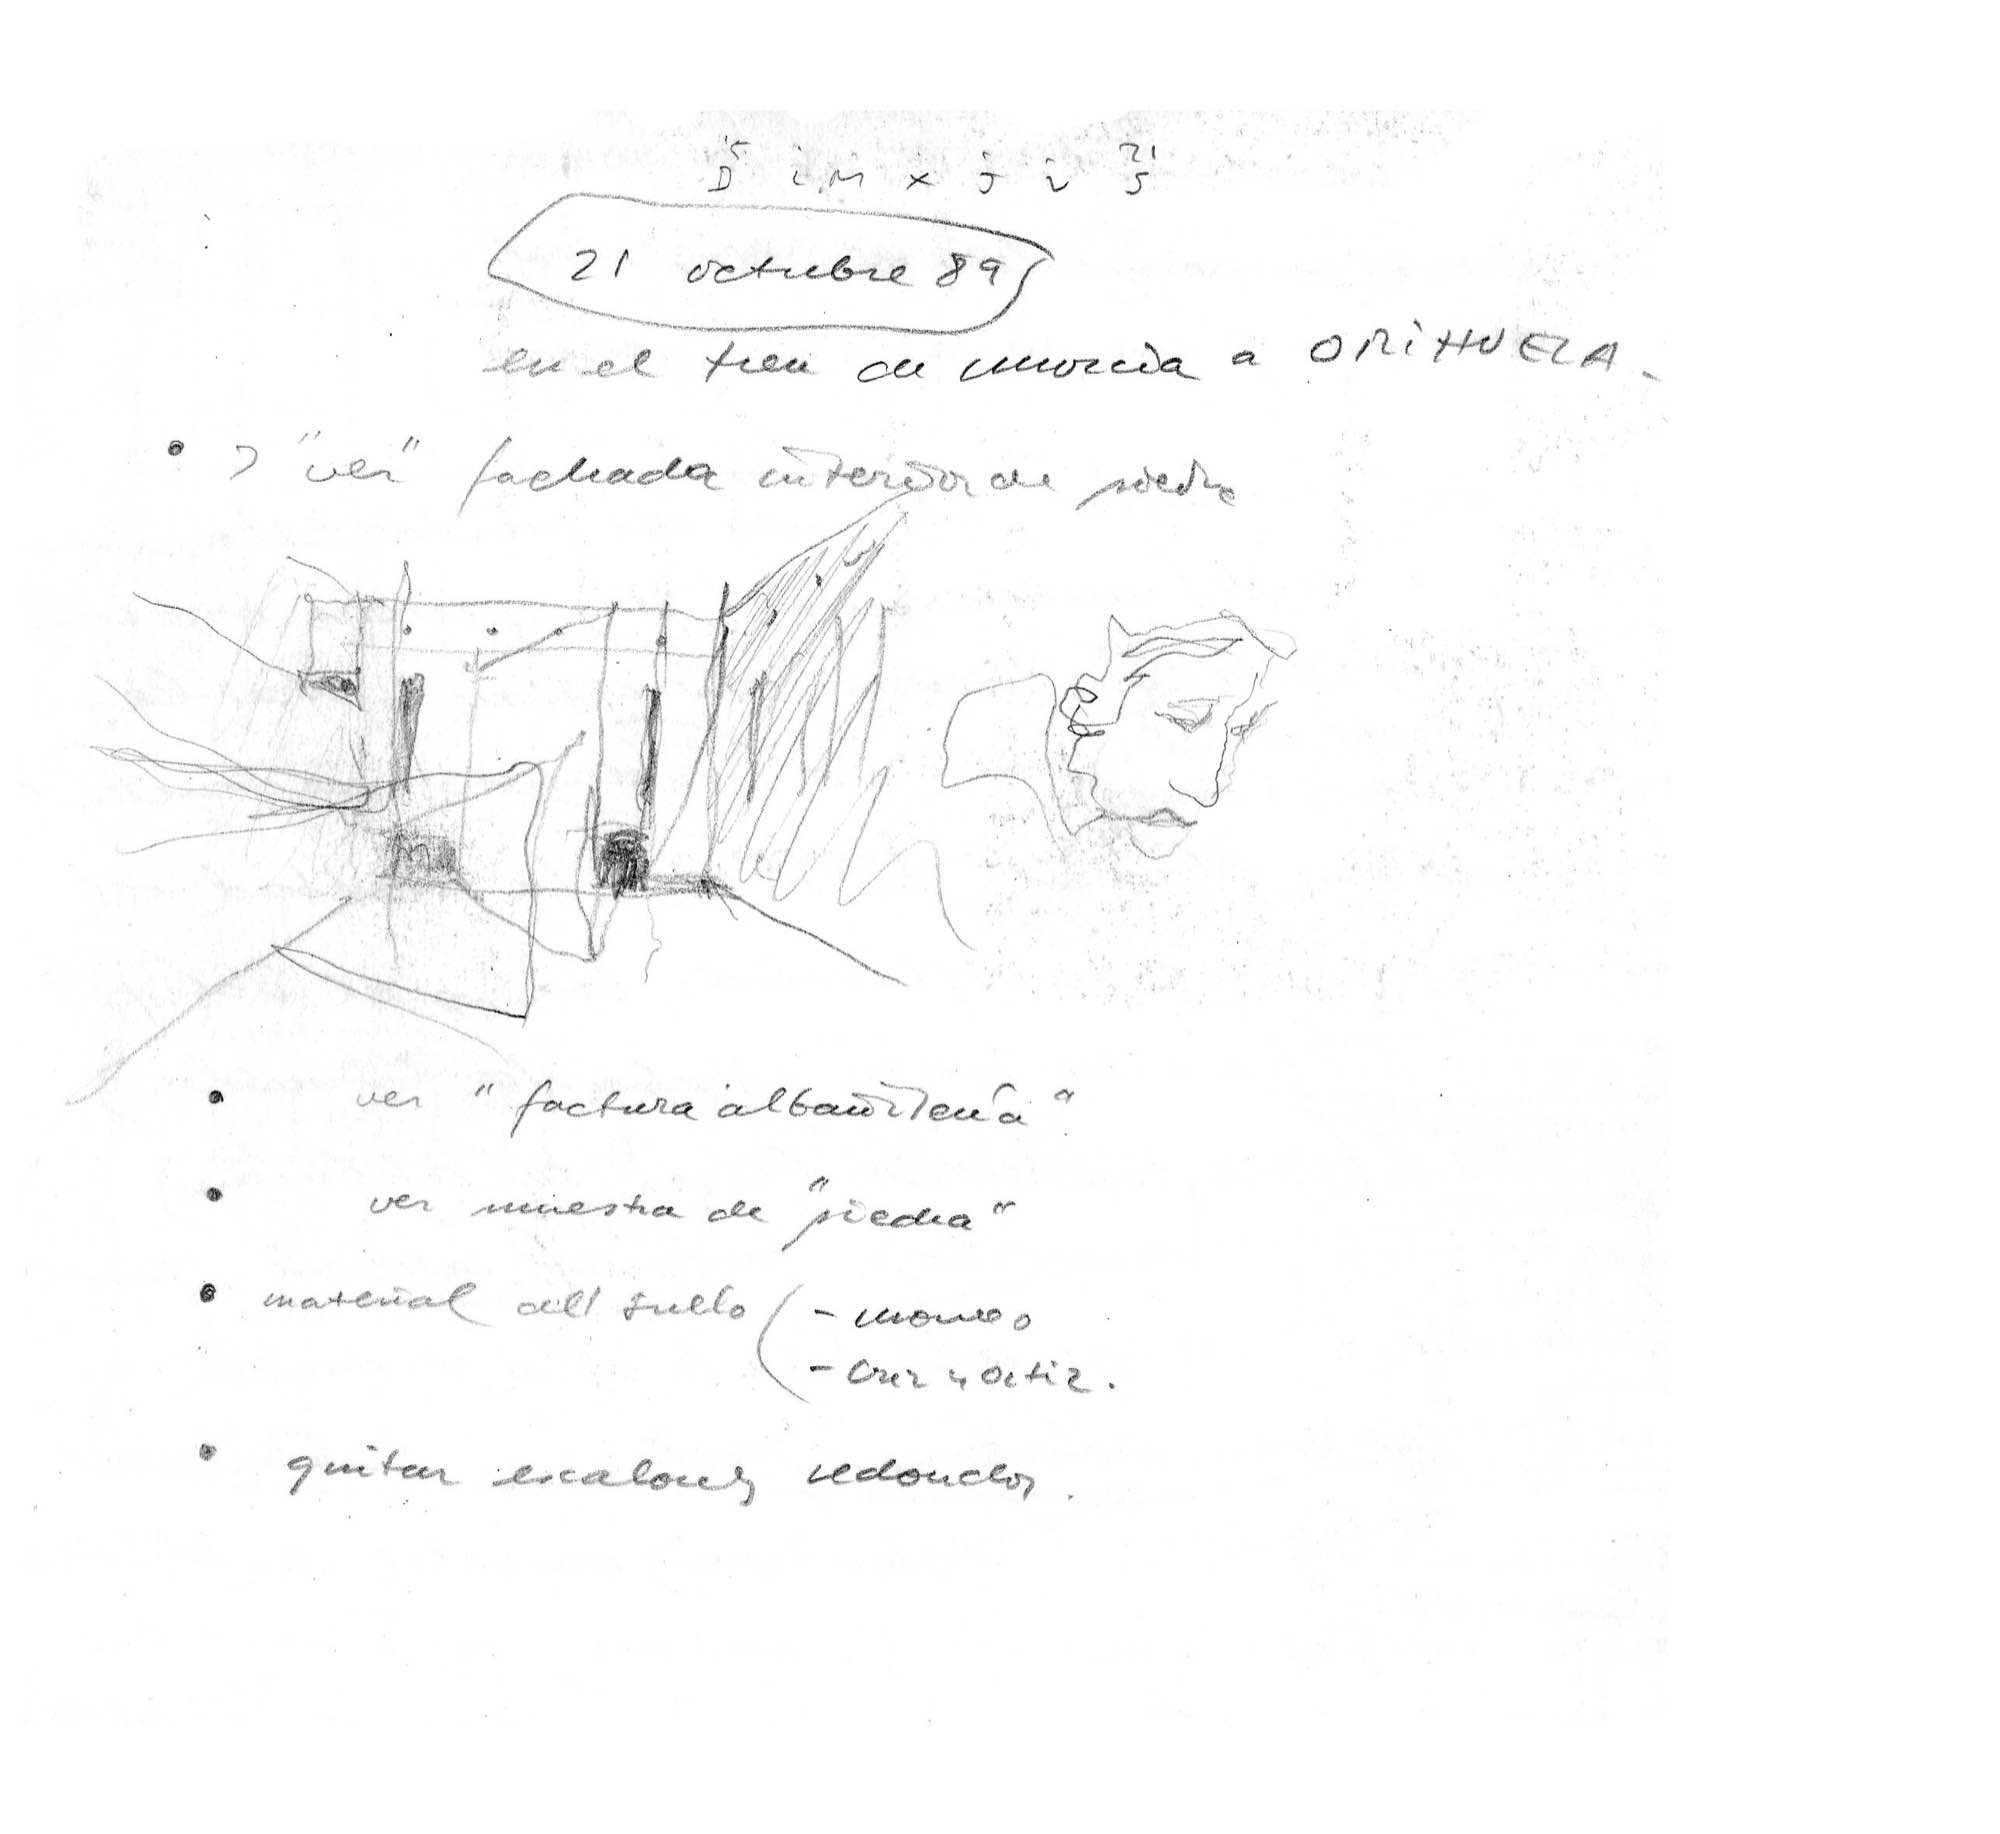 15 21
D L M X J V S
21 octubre 89
en el tren de murcia a ORIHUELA.
• > "ver" fachada interior de piedra
• ver "factura albañilería"
• ver muestra de "piedra"
• material del suelo ( - moneo
- Cruz y Ortiz.
• quitar escalones redondos.